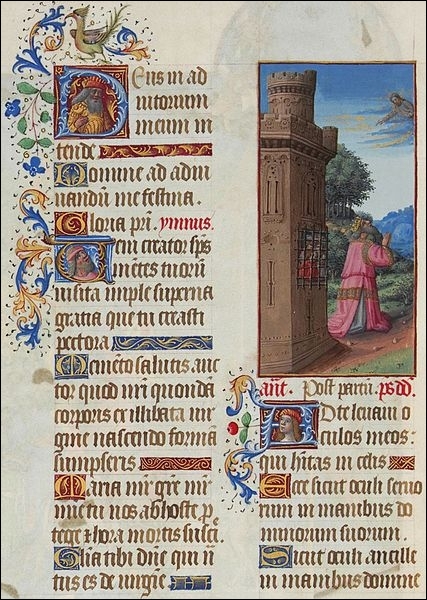 Deus in ad
iutorium
meum in
tende
Domine ad adiu
uandum me festina.
Gloria pri. ymnus.
Ueni creator sps
mentes tuorum
uisita imple superna
gratia que tu creasti
pectora
Memeto salutis auc
tor quod nri quonda
corporis ex illibata uir
gine nascendo forma
sumpseris
Maria mr gre mr
mie tu nos ab hoste p
tege & hora mortis susci.
Glia tibi dne qui n
tus es de uirgie
ant. Post partu. ps dd.
Ad te leuaui o
culos meos:
qui hitas in celis
Ecce sicut oculi seruo
rum in manibus do
minorum suorum.
Sicut oculi ancille
in manibus domine